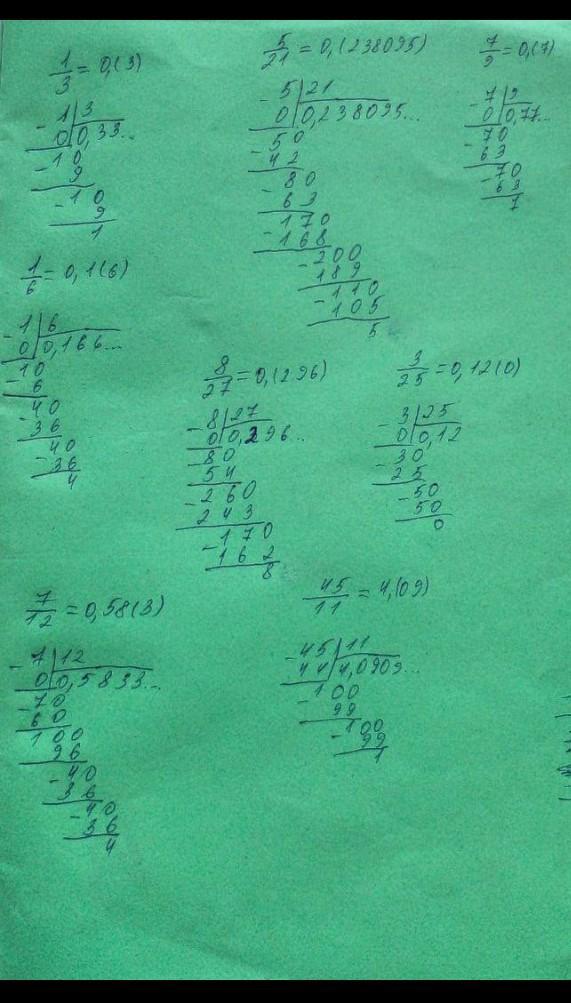 1/3 = 0,(3)
- 1 | 3
0 | 0,33...
- 10
9
- 10
9
1
5/21 = 0,(238095)
- 5 | 21
0 | 0,238095...
50
- 42
- 80
63
- 170
- 168
- 200
189
- 110
- 105
5
7/9 = 0,(7)
- 7 | 9
0 | 0,77...
- 70
63
- 70
63
7
1/6 = 0,1(6)
- 1 | 6
0 | 0,166...
10
- 6
40
- 36
40
- 36
4
8/27 = 0,(296)
- 8 | 27
0 | 0,296...
- 80
54
- 260
243
- 170
- 162
8
3/25 = 0,12(0)
- 3 | 25
0 | 0,12
- 30
25
- 50
50
0
7/12 = 0,58(3)
- 7 | 12
0 | 0,5833...
- 70
60
100
96
- 40
36
- 40
36
4
45/11 = 4,(09)
- 45 | 11
44 | 4,0909...
- 100
99
- 100
99
1